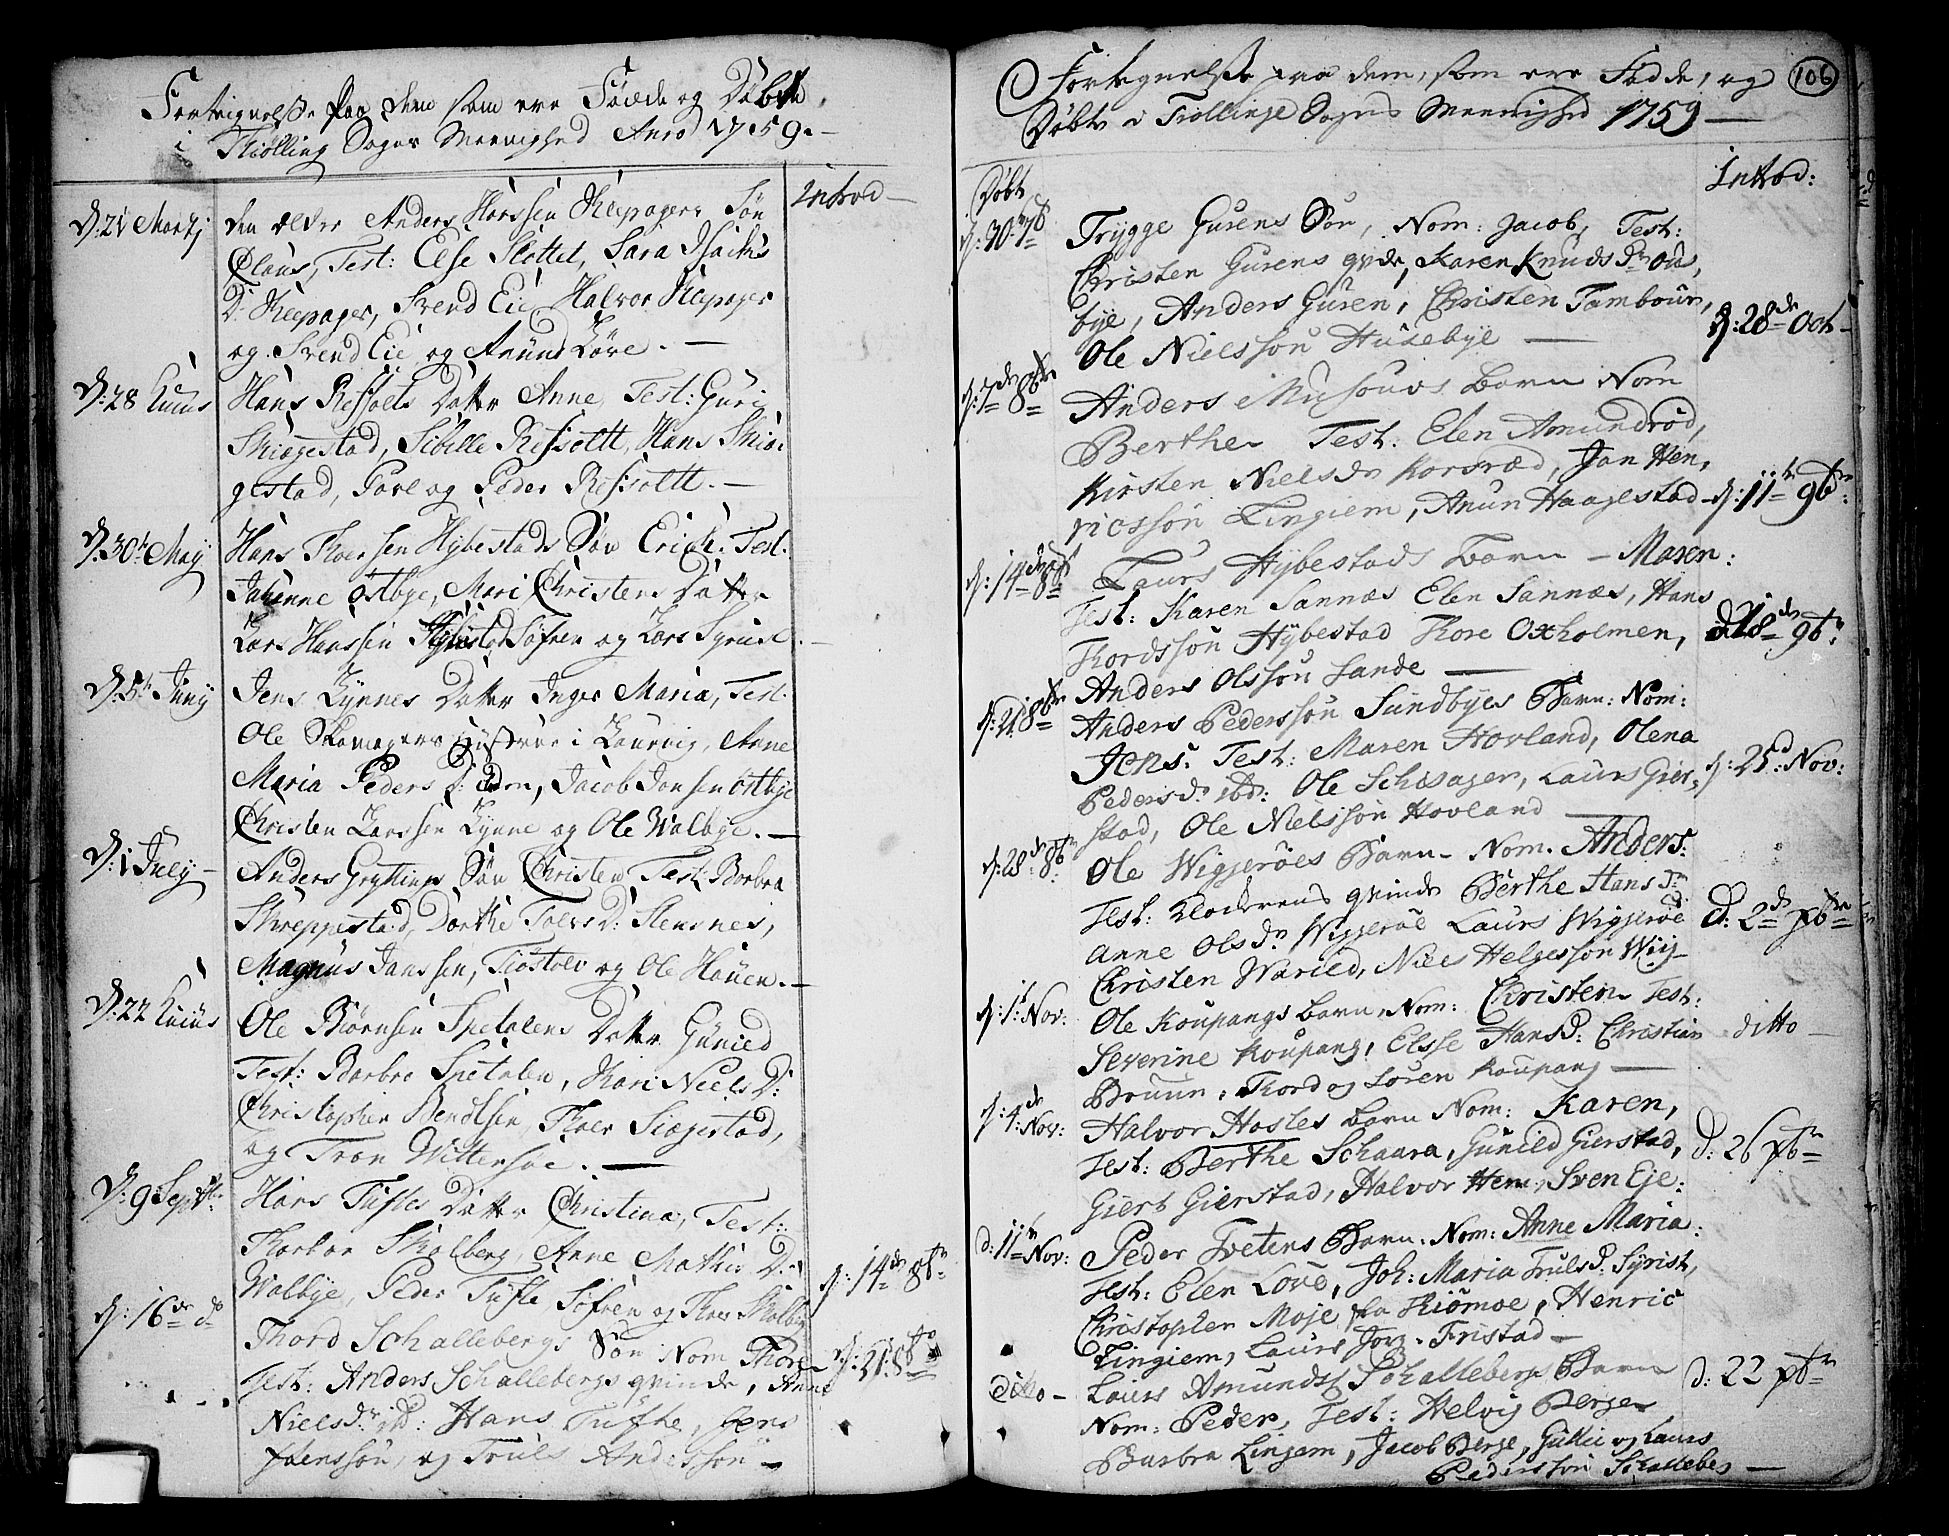 Fortegnelse paa dem som ere Föede og Döbte
i Thiölling Sogns Meenighed Anno 1759.
Introd
D: 21 Martj
den eldre Anders Hanssen Klepagers Sön
Claus, Test: Else Slottet, Sara Isachs
D: Klepager, Svend Eie, Halvor Klepager
og Svend Eie og Anund Löve.
D: 28 hujus
Hans Refsolts Datter Anne, Test: Guri
Skiægestad, Sibille Refsollt, Hans Skiæ
gestad, Povel og Peder Refsollt.
D: 30te May
Hans Thoersen Hybestads Sön Erich. Test.
Johanne Östbye, Mari Christens Datter
Lars Hanssen Hybestad, Söfren og Lars Syrist.
D: 5te Juny
Jens Lynnes Datter Inger Maria, Test.
Ole Skomagers Hustrue i Laurvig, Anne
Maria Peders D:, Jacob Jonsen Östbye
Christen Larssen Lynne og Ole Walbye.
D: 1 July
Anders Gryttings Sön Christen Test: Borbra
Skreppestad, Dorthe Toers D: Stensnes,
Magnus Janssen, Tiöstolv og Ole Hauen.
D: 22 hujus
Ole Biörnsen Spetalens Datter Gunild
Test: Barbra Spetalen, Kari Niels D:
Christopher Bendtsen, Thoer Siægestad,
og Tron Wittersöe.
D: 9 Septbr:
Hans Tufte's Datter Christina, Test:
Thorbor Skalberg, Anne Mathis D:
Walbye, Peder Tufte, Söfren og Thoer Skalberg
D: 14de 8br
D: 16de do
Thord Schallebergs Sön Nom Thore
Test: Anders Schallebergs qvinde, Anne
Niels Dr ibd: Hans Tufthe, Jens
Joensson, og Truls Andersson
D: 21: 8br
106
Fortegnelse paa dem, som ere Födde, og
Döbte i Tiöllinge Sogns Meenighed 1759
Döbt
Introd:
D: 30: 7br
Trygge Gurens Sön, Nom: Jacob, Test:
Christen Gurens qvde, Karen Knuds Dr Ous,
bye, Anders Guren, Christen Tambour,
Ole Nielsson Husebye
D: 28de Oct
D: 7de 8br
Anders Musouvs Barn Nom
Berthe Test: Elen Amundröd,
Kirsten Niels Dr Korsræd, Jan Hen,
ricsson Lingiem, Anun Haagestad
D: 11te 9br:
D: 14de 8br
Laurs Hybestads Barn - Maren:
Test: Karen Sannæs Elen Sannæs, Hans
Thordssön Hybestad Thore Oxholmen,
Anders Olssön Sande
D: 18de 9br:
D: 21 8br
Anders Pederssön Sundbyes Barn: Nom:
Jens: Test: Maren Hovland, Olena
Peders Dr ibd: Ole Schisager, Laurs Gier,
stad, Ole Nielssön Hovland
D: 25d Nov:
D: 28de 8br:
Ole Wigjeröes Barn - Nom. Anders.
Test: Klocherens qvinde Berthe Hans Dr
Anne Ols Dr Wigjeröe Laurs Wigjeröe
Christen Warild, Niels Helgesson Wiig
D: 2de xbr
D: 1te Nov:
Ole Koupangs Barn, Nom: Christen. Test:
Severine Koupang, Elsse Hans D: Christian
Bruun, Thord og Sören Koupang
ditto
D: 4de Nov:
Halvor Hasles Barn Nom: Karen,
Test: Berthe Schaara, Gunild Gierstad,
Giert Gierstad, Halvor Hem, Sven Eje:
D: 26 xbr
d: 11te Nov:
Peder Tvetens Barn. Nom: Anne Maria.
Test: Elen Love, Joh: Maria Truls D. Syrist,
Christopher Moje fra Thiömöe, Henric
Lingiem, Laurs Jörg. Fristad
ditto
Laurs Amunds Schallebergs Barn
Nom: Peder, Test: Helvig Berge
Barbra Lingem, Jacob Berge, Gullic og Laurs
Pederssön Schalleberg
d: 22 xbr